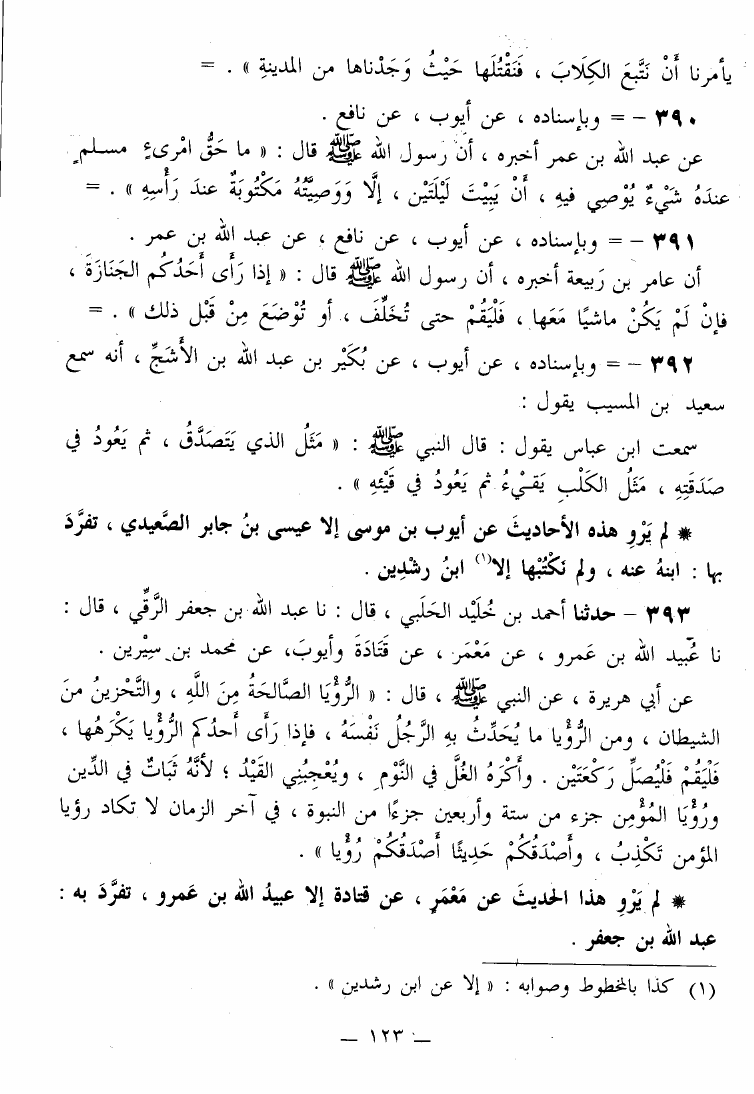 يأمرنا أَنْ نَتَّبِعَ الكِلَابَ ، فَنَقْتُلَها حَيْثُ وَجَدْناها من المدينةِ » . =
٣٩٠ – = وبإسناده ، عن أيوب ، عن نافع .
عن عبد الله بن عمر أخبره ، أن رسول الله ﷺ قال : « ما حَقُّ امْرِىءٍ مسلمٍ
عندَهُ شَيْءٌ يُوْصِي فيه ، أَنْ يَبِيْتَ لَيْلَتَيْن ، إلَّا وَوَصِيَّتُهُ مَكْتُوبَةٌ عندَ رَأْسِهِ » . =
٣٩١ – = وبإسناده ، عن أيوب ، عن نافع ، عن عبد الله بن عمر .
أن عامر بن رَبيعة أخبره ، أن رسول الله ﷺ قال : « إذا رَأَى أَحَدُكُم الجَنَازَةَ ،
فإنْ لَمْ يَكُنْ ماشيًا مَعَها ، فَلْيَقُمْ حتى تُخَلِّفَ ، أو تُوْضَعَ مِنْ قَبْل ذلك » . =
٣٩٢ – = وبإسناده ، عن أيوب ، عن بُكَيْر بن عبد الله بن الأَشَجِّ ، أنه سمع
سعيد بن المسيب يقول :
سمعت ابن عباس يقول : قال النبي ﷺ : « مَثَلُ الذي يَتَصَدَّقُ ، ثم يَعُودُ في
صَدَقَتِهِ ، مَثَلُ الكَلْبِ يَقيْءُ ثم يَعُودُ في قَيْئِهِ » .
* لم يَرْوِ هذه الأحاديثَ عن أيوب بن موسى إلا عيسى بنُ جابر الصَّعيدي ، تفرَّدَ
بها : ابنهُ عنه ، ولم نَكْتُبْها إلا(١) ابنُ رشدِين .
٣٩٣ – حدثنا أحمد بن خُلَيْد الحَلَبي ، قال : نا عبد الله بن جعفر الرَّقِّي ، قال :
نا عُبيد الله بن عَمرو ، عن مَعْمَر ، عن قَتَادَةَ وأيوبَ، عن محمد بن سِيْرين .
عن أبي هريرة ، عن النبي ﷺ ، قال : « الرُّؤْيَا الصَّالحَةُ مِنَ اللَّهِ ، والتَّحْزينُ منَ
الشيطان ، ومن الرُّؤيا ما يُحَدِّثُ بِهِ الرَّجُلُ نَفْسَهُ ، فإذا رَأَى أحدُكم الرُّؤيا يَكْرَهُها ،
فَلْيَقُمْ فَلْيُصَلِّ رَكْعَتَيْن . وأَكْرَهُ الغُلَّ في النَّوْمِ ، ويُعْجِبُنِي القَيْدُ ؛ لأنَّهُ ثَبَاتٌ في الدِّين
ورُؤْيَا المُؤْمِن جزء من ستة وأربعين جزءًا من النبوة ، في آخر الزمان لا تكاد رؤيا
المؤمن تَكْذِبُ ، وأَصْدَقُكُمْ حَدِيثًا أَصْدَقُكُمْ رُؤْيا » .
* لم يَرْوِ هذا الحديثَ عن مَعْمَرٍ ، عن قتادة إلا عبيدُ الله بن عَمرو ، تفرَّدَ به :
عبد الله بن جعفر .
(١) كذا بالمخطوط وصوابه : « إلا عن ابن رشدين » .
– ١٢٣ –